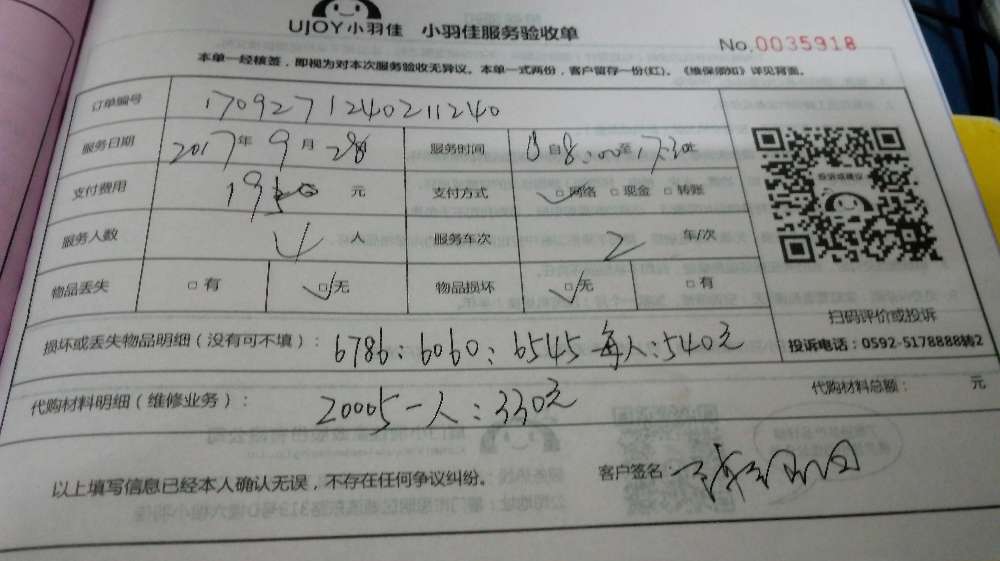 UJOY小羽佳 小羽佳服务验收单
No.0035918
本单一经核签，即视为对本次服务验收无异议。本单一式两份，客户留存一份(红)。《维保须知》详见背面。
订单编号 170927124021​1240
服务日期 2017年9月28 服务时间 自8:00至17:30止
支付费用 1950 元 支付方式 □网络 □现金 □转账
服务人数 4 人 服务车次 2 车/次
物品丢失 □有 □无 物品损坏 □无 □有
投诉或建议
扫码评价或投诉
投诉电话：0592-5178888转2
损坏或丢失物品明细（没有可不填）：6786：6060：6545 每人：540元
代购材料明细（维修业务）：20005一人：330元 代购材料总额： 元
以上填写信息已经本人确认无误，不存在任何争议纠纷。 客户签名：